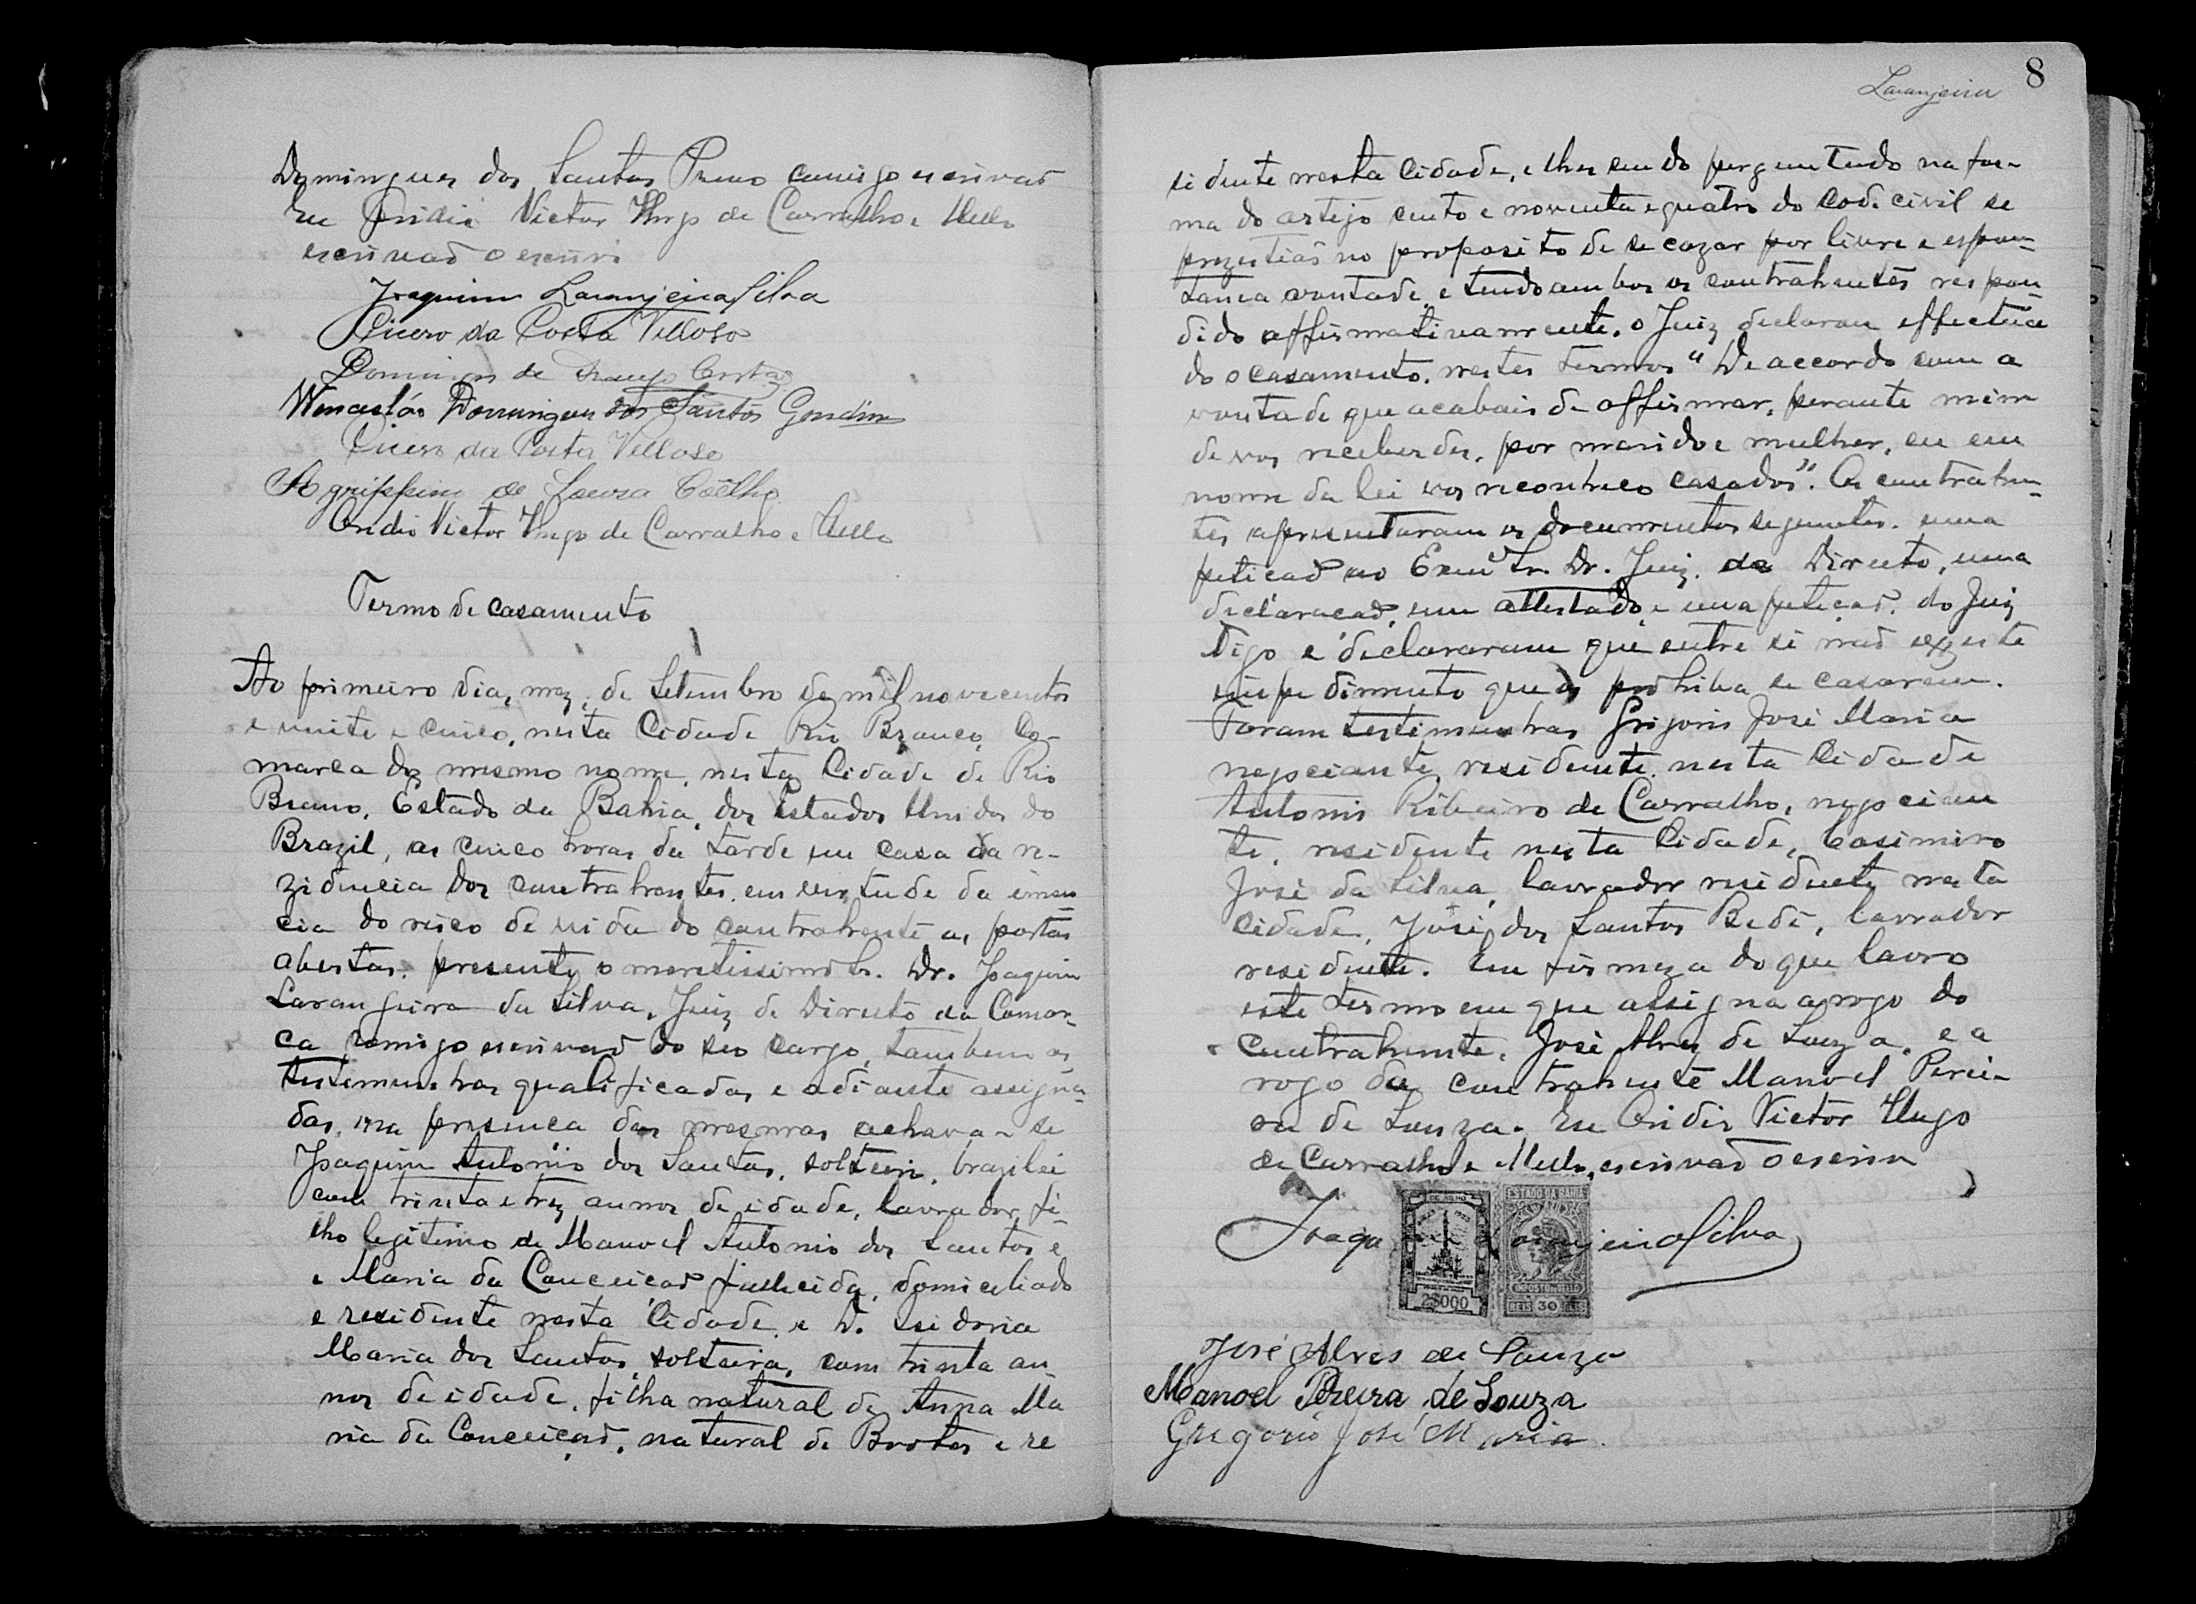 Domingues dos Santos Primo comigo escrivaõ
Eu Ovidio Victor Hugo de Carvalho e Mello
escrivaõ o escrivi
Joaquim Laranjeira Silva
Cicero da Costa Velloso
Domingos de Araujo Costa
Wencesláo Domingues dos Santos Gondim
Cicero da Costa Velloso
Agrippino de Souza Coêlho
Ovidio Victor Hugo de Carvalho e Mello
Termo de casamento
Ao primeiro dia, mez, de Setembro de mil novecentos
e vinte e cinco, nesta Cidade Rio Branco, Co-
marca do mesmo nome, nesta Cidade de Rio
Branco, Estado da Bahia, dos Estados Unidos do
Brazil, as cinco horas da tarde em casa da re-
zidencia dos contrahentes, em virtude da
cia do risco de vida do contrahente as portas
abertas, presente o meretissimo Sr. Dr. Joaquim
Laranjeira da Silva, Juiz de Direito da Comar-
ca comigo escrivaõ do seo cargo, tambem as
testimunhas qualificadas e adiante assigna-
das, na presenca das mesmas achava-se
Joaquim Antonio dos Santos, solteiro, brazilei
com trinta e trez annos de idade, lavrador, fi-
lho legitimo de Manoel Antonio dos Santos e
e Maria da Conceicaõ fallecida, domiciliado
e rezidente nesta Cidade, e D. Izidoria
Maria dos Santos, solteira, com trinta an-
nos de idade, filha natural de Anna Ma
ria da Conceicaõ, natural de Brotas e re
8
Laranjeira
sidente nesta Cidade, e lhes sendo perguntado na for-
ma do artigo cento e noventa e quatro do Cod. civil se
prezestiaõ no proposito de se cazar por livre e espon-
tanea vontade, e tendo ambos os contrahentes respon-
dido affirmativamente, o Juiz declarou effectua
do o casamento, nestes termos "De accordo com a
vontade que acabais de affirmar, perante mim
de vos receberdes, por marido e mulher, eu em
nome da lei vos reconheco casados". Os contrahen-
tes apresentaram os documentos seguintes. uma
peticaõ ao Exmº Sr. Dr. Juiz de Direito, uma
declaracaõ, um attestado, e uma peticaõ. do Juiz
Digo e declararam que entre si naõ exziste
impedimento que os prohiba de casarem.
Foram testimunhas Grigorio José Maria
negociante, residente nesta Cidade
Antonio Ribeiro de Carvalho, negocian
te, residente nesta Cidade, Casimiro
José da Silva, lavrador residente nesta
cidade, José dos Santos Bedê, lavrador
residente. Em firmeza do que lavro
este termo em que assigna a rogo do
contrahente, José Alves de Souza, e a
rogo da contrahente Manoel Perei-
ra de Souza. Eu Ovidio Victor Hugo
de Carvalho e Mello, escrivaõ o escrivi
Joaquim Laranjeira Silva
2$000
ESTADO DA BAHIA
REIS 30 REIS
José Alves de Souza
Manoel Pereira de Souza
Gregorio José Maria.